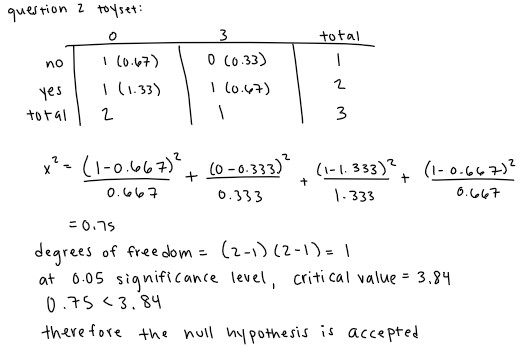 question 2 toyset:
0 3 total
no 1 (0.67) 0 (0.33) 1
yes 1 (1.33) 1 (0.67) 2
total 2 1 3
x² = (1-0.667)²/0.667 + (0-0.333)²/0.333 + (1-1.333)²/1.333 + (1-0.667)²/0.667
= 0.75
degrees of freedom = (2-1)(2-1) = 1
at 0.05 significance level, critical value = 3.84
0.75 < 3.84
therefore the null hypothesis is accepted